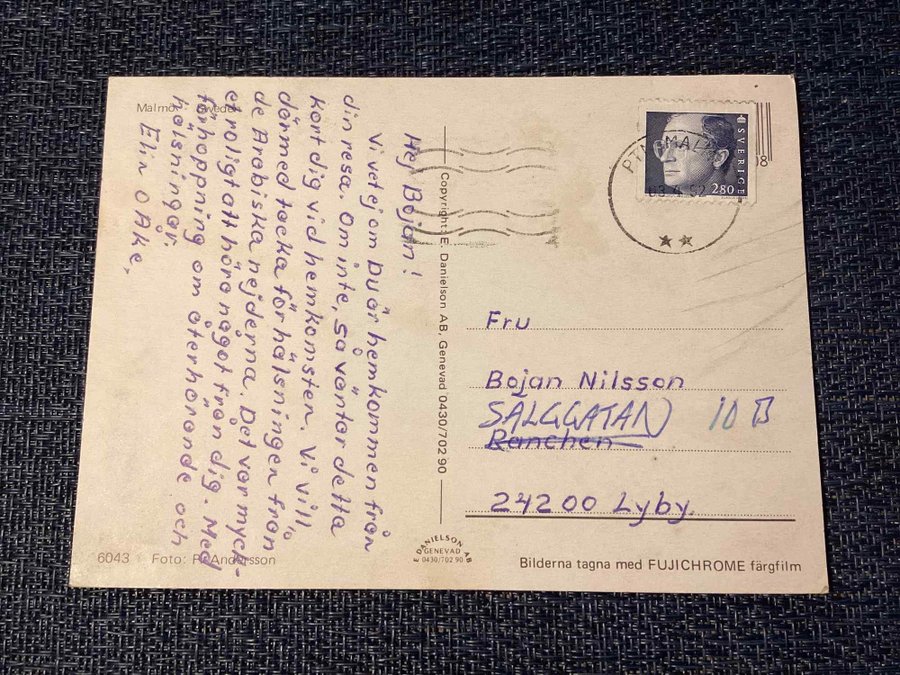 Malmö. Sweden
Hej Bojan!
Vi vet ej om Du är hemkommen från
din resa. Om inte, så väntar detta
kort dig vid hemkomsten. Vi vill
därmed tacka för hälsningen från
de Arabiska nejderna. Det var myck-
et roligt att höra något från dig. Med
förhoppning om återhörande och
hälsningar.
Elin o Åke.
6043 Foto: P. Andersson
Copyright: E. Danielson AB, Genevad 0430/702 90
E DANIELSON AB
GENEVAD
0430/702 90
SVERIGE
280
Fru
Bojan Nilsson
SALGGATAN 10 B
Ranchen
24200 Lyby.
Bilderna tagna med FUJICHROME färgfilm